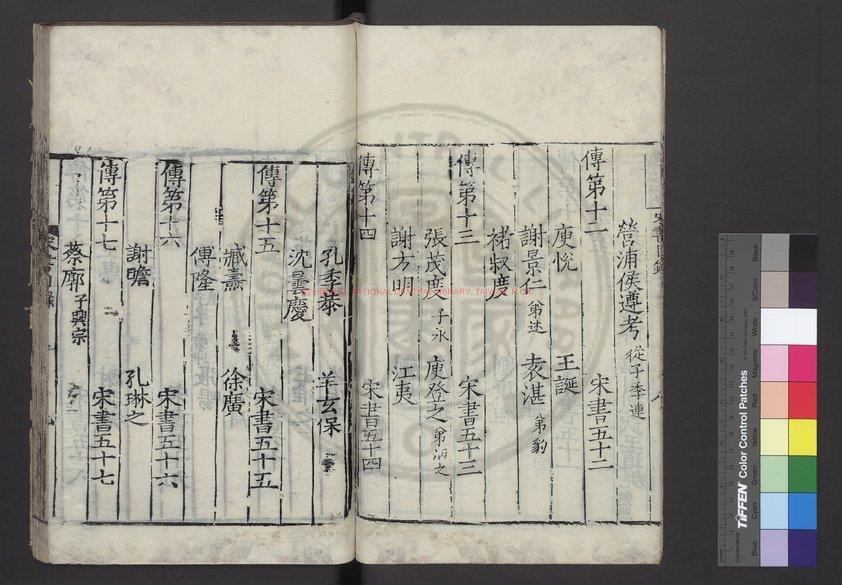 營浦侯遵考 從子季連
傳第十二 宋書五十二
庾悅 王誕
謝景仁 弟述 袁湛 弟豹
褚叔度
傳第十三 宋書五十三
張茂度 子永 庾登之 弟炳之
謝方明 江夷
傳第十四 宋書五十四
孔季恭 羊玄保
沈曇慶
傳第十五 宋書五十五
臧燾 徐廣
傅隆
傳第十六 宋書五十六
謝瞻 孔琳之
傳第十七 宋書五十七
蔡廓 子興宗
TIFFEN Color Control Patches
Blue Cyan Green Yellow Red Magenta White 3/Color Black